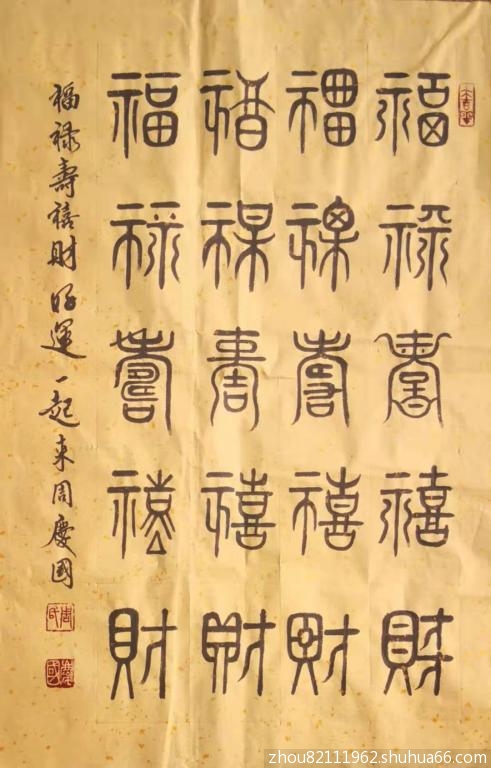 福祿壽禧財
福祿壽禧財
福祿壽禧財
福祿壽禧財
福祿壽禧財好運一起來周慶國
zhou82111962.shuhua66.com